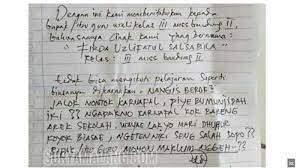 Dengan ini kami memberitahukan kepada
bapak/ibu guru wali kelas III MISS bandung II,
bahwasanya anak kami yang bernama:
"FIKDA UZLIFATUL SALSABILA"
kelas: III MISS bandung II
tidak bisa mengikuti pelajaran seperti
biasanya dikarenakan "NANGIS BEROK2
JALOK NONTOK KARNAFAL, PIYE BUMUNJIDAH
IKI?? NGAPAKNO KARNAFAL KOK BARENG
AREK SEKOLAH, WANALAK YO MARI DHUHUR
KOYOK BIASAE, NGETEN NIKI SENG SALAH SOPO??
BAPAK/IBU GURU MOHON MAKLUM NGGEH-??